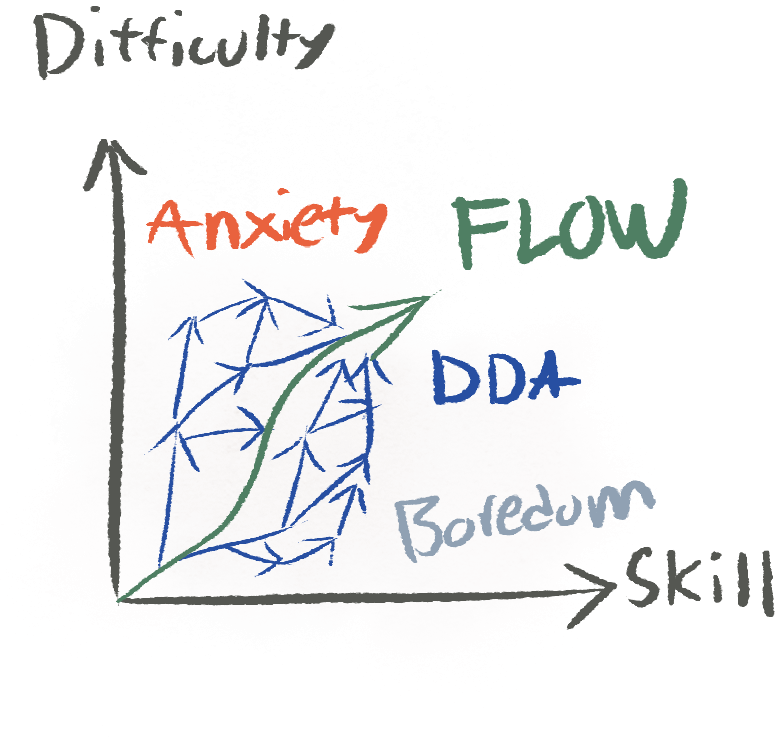 Difficulty
Anxiety
FLOW
DDA
Boredom
Skill